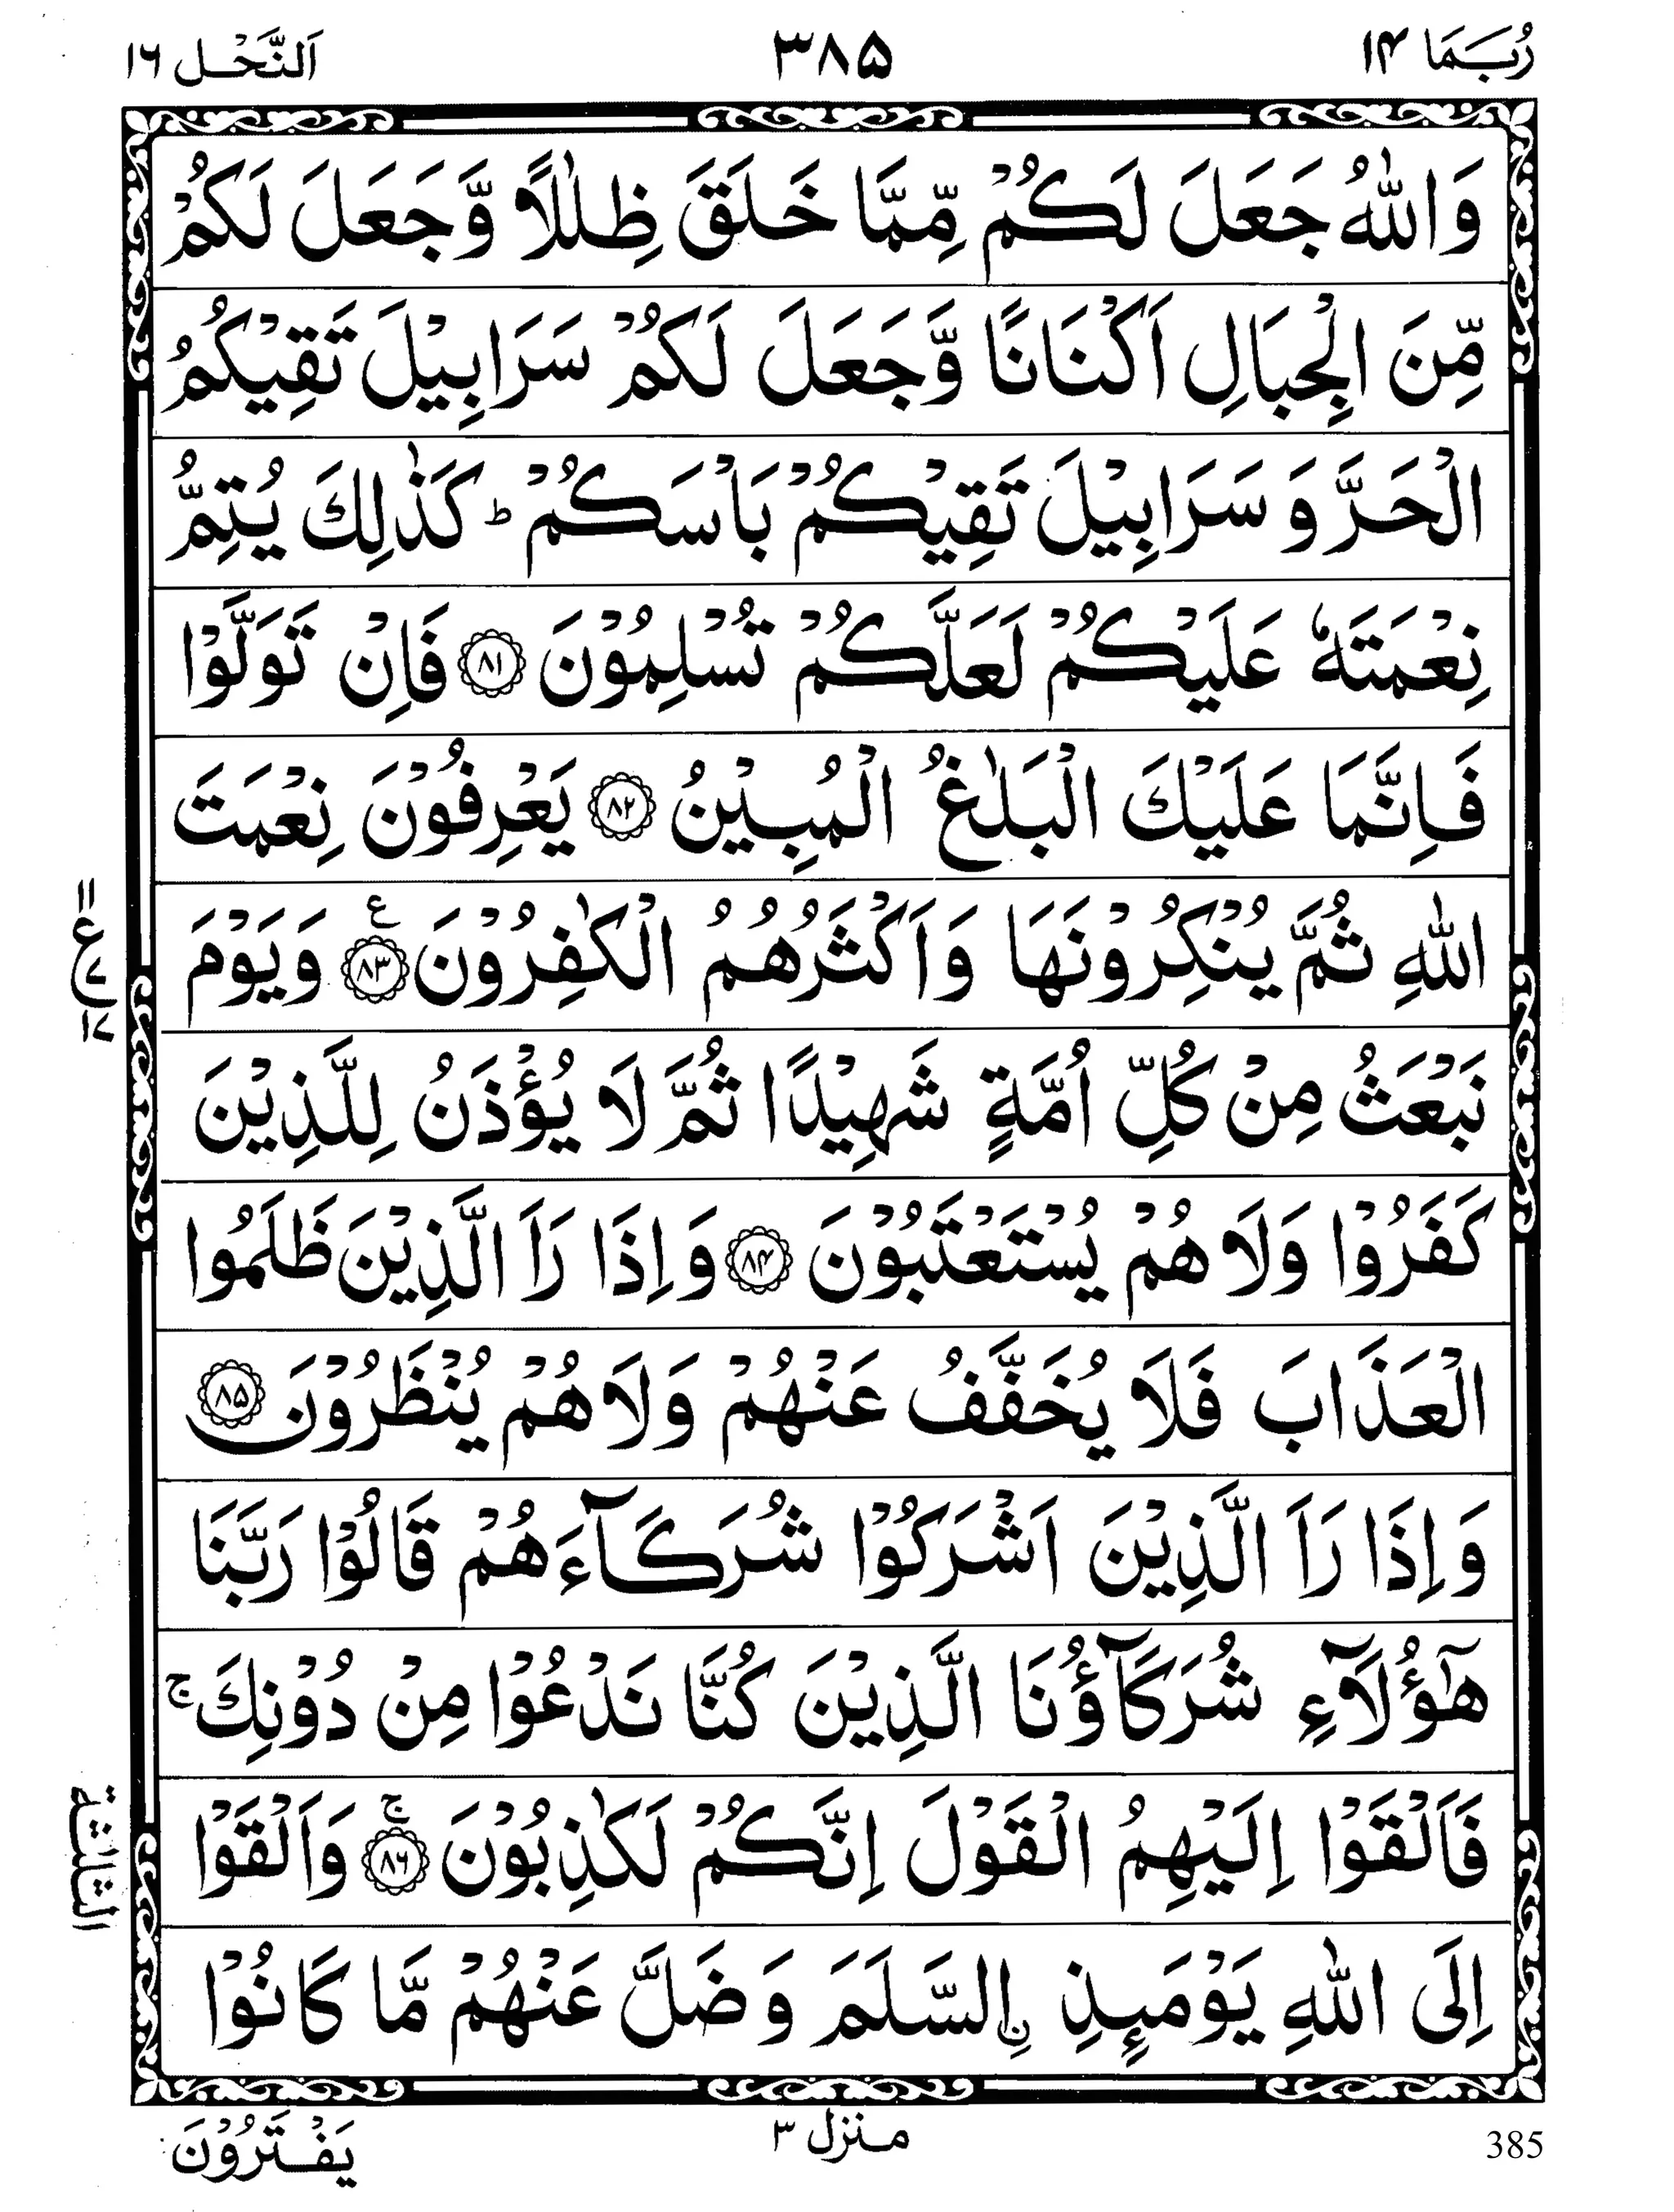 رُبَمَا ۱۴
۳۸۵
اَلنَّحْل ۱۶
وَاللّٰهُ جَعَلَ لَكُمْ مِّمَّا خَلَقَ ظِلٰلًا وَّجَعَلَ لَكُمْ
مِّنَ الْجِبَالِ اَكْنَانًا وَّجَعَلَ لَكُمْ سَرَابِيْلَ تَقِيْكُمُ
الْحَرَّ وَ سَرَابِيْلَ تَقِيْكُمْ بَاْسَكُمْ ؕ كَذٰلِكَ يُتِمُّ
نِعْمَتَهٗ عَلَيْكُمْ لَعَلَّكُمْ تُسْلِمُوْنَ ﴿۸۱﴾ فَاِنْ تَوَلَّوْا
فَاِنَّمَا عَلَيْكَ الْبَلٰغُ الْمُبِيْنُ ﴿۸۲﴾ يَعْرِفُوْنَ نِعْمَتَ
اللّٰهِ ثُمَّ يُنْكِرُوْنَهَا وَاَكْثَرُهُمُ الْكٰفِرُوْنَ ﴿۸۳﴾ ع وَيَوْمَ
نَبْعَثُ مِنْ كُلِّ اُمَّةٍ شَهِيْدًا ثُمَّ لَا يُؤْذَنُ لِلَّذِيْنَ
كَفَرُوْا وَلَا هُمْ يُسْتَعْتَبُوْنَ ﴿۸۴﴾ وَ اِذَا رَاَ الَّذِيْنَ ظَلَمُوا
الْعَذَابَ فَلَا يُخَفَّفُ عَنْهُمْ وَلَا هُمْ يُنْظَرُوْنَ ﴿۸۵﴾
وَ اِذَا رَاَ الَّذِيْنَ اَشْرَكُوْا شُرَكَآءَهُمْ قَالُوْا رَبَّنَا
هٰٓؤُلَآءِ شُرَكَآؤُنَا الَّذِيْنَ كُنَّا نَدْعُوْا مِنْ دُوْنِكَ ۚ
فَاَلْقَوْا اِلَيْهِمُ الْقَوْلَ اِنَّكُمْ لَكٰذِبُوْنَ ﴿۸۶﴾ ۚ وَاَلْقَوْا
اِلَى اللّٰهِ يَوْمَئِذِ ِۨالسَّلَمَ وَضَلَّ عَنْهُمْ مَّا كَانُوْا
الثلثة
يَفْتَرُوْنَ
منزل ۳
385